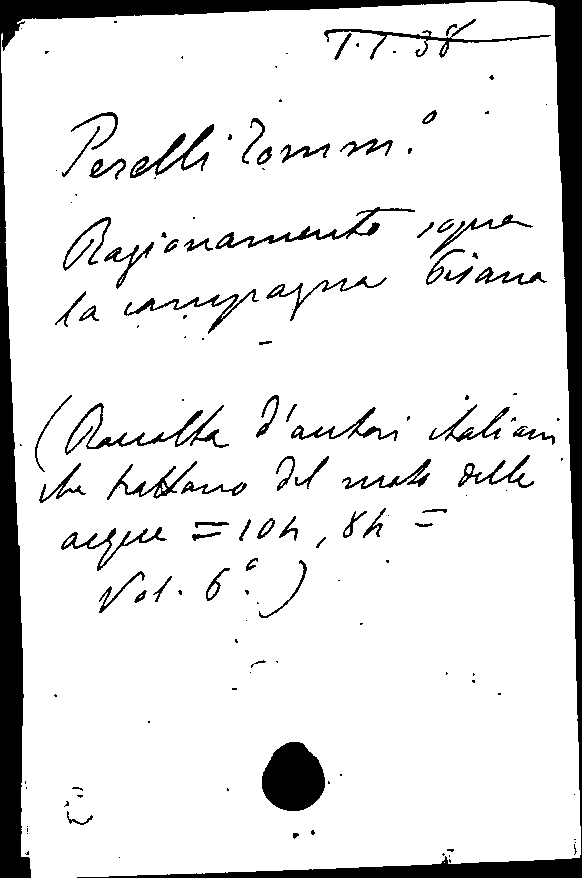 1.1.38
Perelli Tomm.º
Ragionamento sopra
la campagna Pisana
(Raccolta d'autori italiani
che trattano del moto delle
acque = 10h, 8h =
Vol. 6º.)